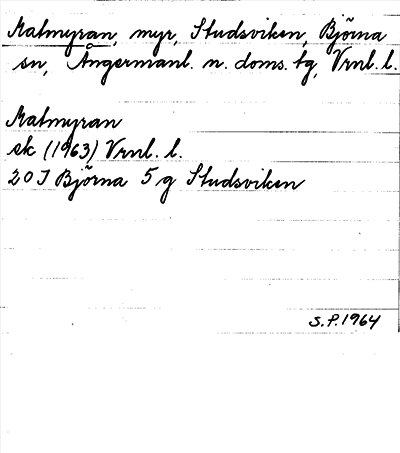 Malmyran, myr, Studsviken, Björna
sn, Ångermanl. n. doms. tg, Vrnl. l.
Malmyran
ek (1963) Vrnl. l.
20 J Björna 5 g Studsviken
S.P. 1964